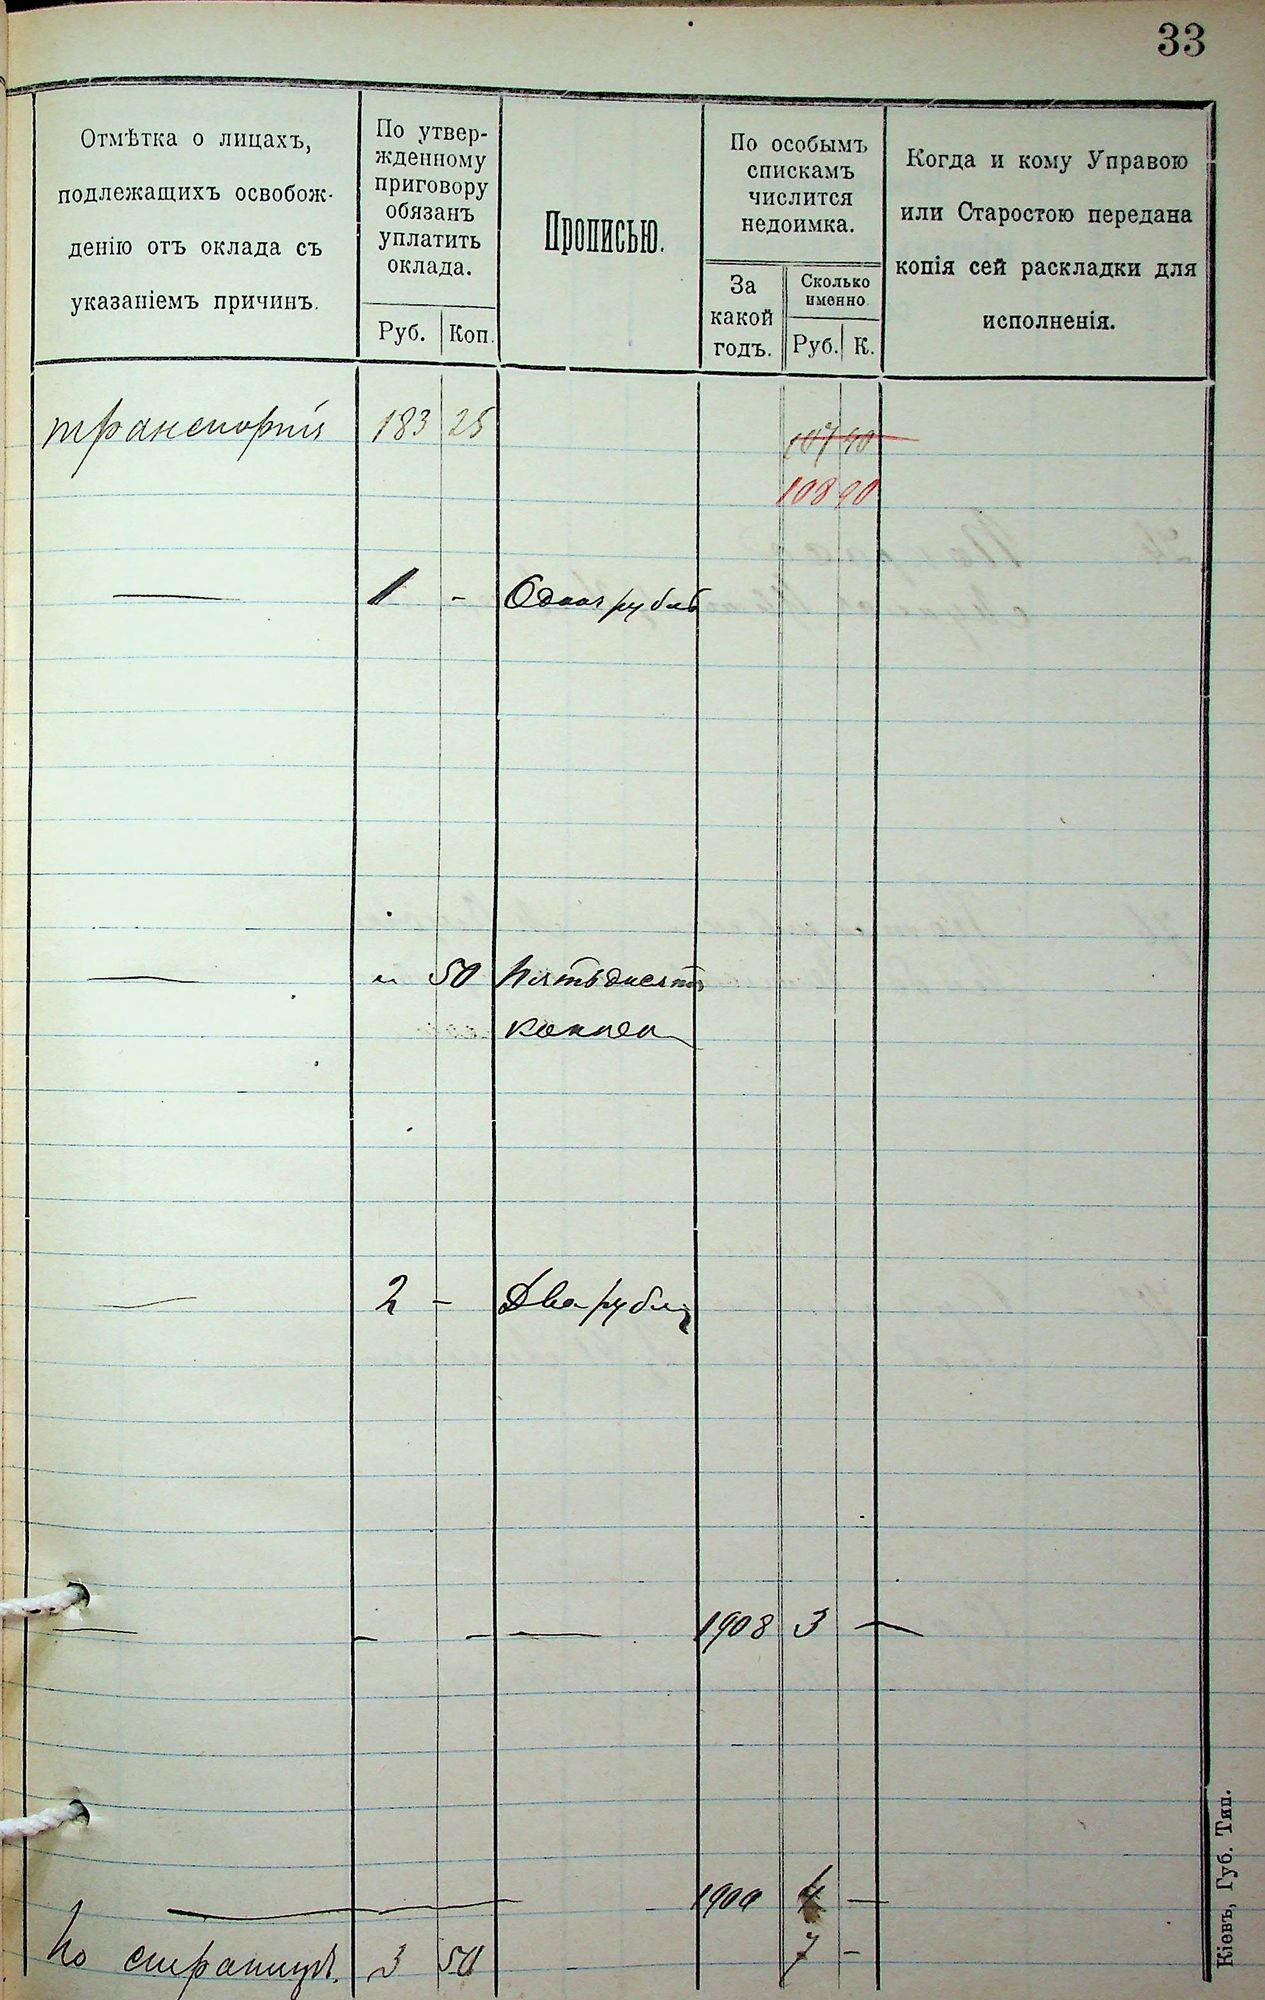 33
Отмѣтка о лицахъ,
подлежащихъ освобож-
денію отъ оклада съ
указаніемъ причинъ.
По утвер-
жденному
приговору
обязанъ
уплатить
оклада.
Руб. Коп.
Прописью.
По особымъ
спискамъ
числится
недоимка.
За
какой
годъ.
Сколько
именно
Руб. К.
Когда и кому Управою
или Старостою передана
копія сей раскладки для
исполненія.
транспортъ 183 25 107 40
108 90
— 1 - Одинъ рубль
— " 50 Пятьдесятъ
копеек
— 2 - Два рубля
— - - — 1908 3 —
— 1909 4 —
По страницѣ. 3 50 7 -
Кіевъ, Губ. Тип.